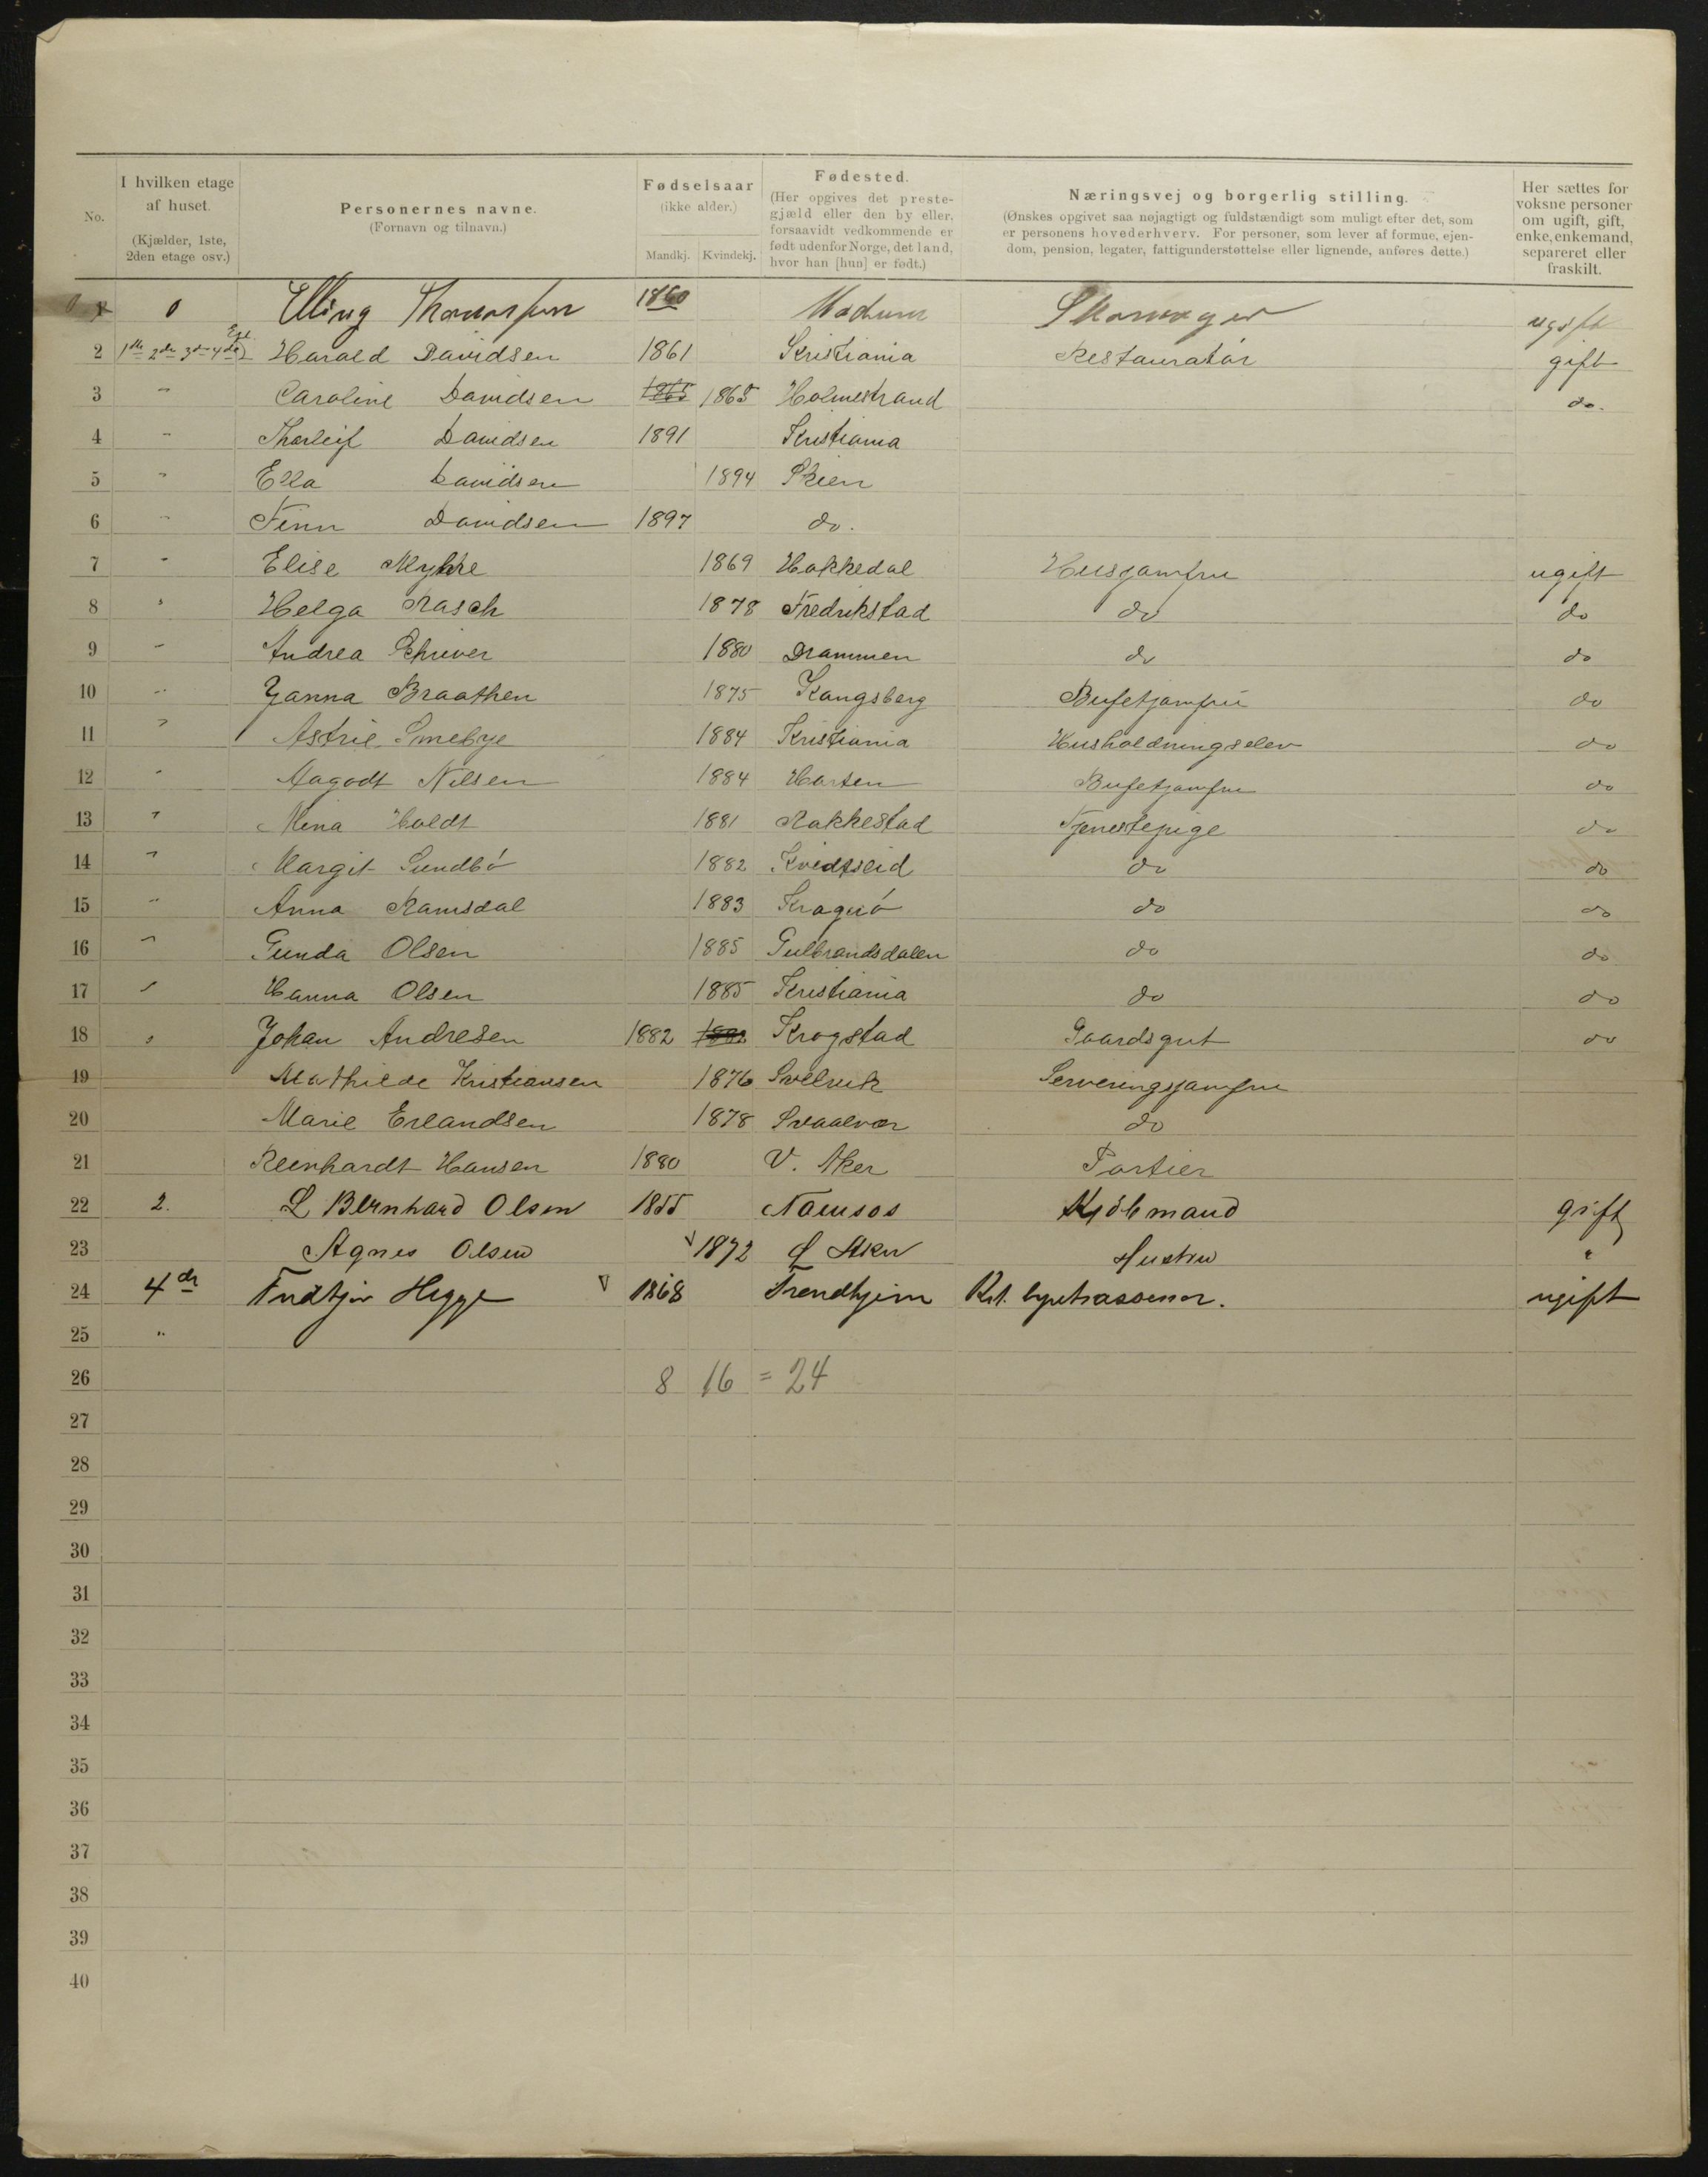 No.
I hvilken etage af huset. (Kjælder, 1ste, 2den etage osv.)
Personernes navne. (Fornavn og tilnavn.)
Fødselsaar (ikke alder.) Mandkj. Kvindekj.
Fødested. (Her opgives det prestegjæld eller den by eller, forsaavidt vedkommende er født udenfor Norge, det land, hvor han [hun] er født.)
Næringsvej og borgerlig stilling. (Ønskes opgivet saa nøjagtigt og fuldstændigt som muligt efter det, som er personens hovederhverv. For personer, som lever af formue, ejendom, pension, legater, fattigunderstøttelse eller lignende, anføres dette.)
Her sættes for voksne personer om ugift, gift, enke, enkemand, separeret eller fraskilt.
0 Elling 1860 Modum Skomager ugift
2 1ste 2den 3die 4de Harald Davidsen 1861 Kristiania Restauratör gift
3 " Caroline Davidsen 1865 1865 Holmestrand do.
4 " Thorleif Davidsen 1891 Kristiania
5 " Ella Davidsen 1894 Skien
6 " Finn Davidsen 1897 do.
7 " Elise Myhre 1869 Hakkedal Husjomfru ugift
8 " Helga Rasch 1878 Fredrikstad do do
9 " Andrea Schriver 1880 Drammen do do
10 " Janna Braathen 1875 Kongsberg Bufetjomfru do
11 " Astrie Smebye 1884 Kristiania Husholdningselev do
12 " Aagodt Nilsen 1884 Horten Bufetjomfru do
13 " Mina Holdt 1881 Rakkestad Tjenestepige do
14 " Margit Sundbö 1882 Kvidtseid do do
15 " Anna Ramsdal 1883 Kragerö do do
16 " Gunda Olsen 1885 Gulbrandsdalen do do
17 " Hanna Olsen 1885 Kristiania do do
18 " Johan Andresen 1882 1882 Krogstad Gaardsgut do
19 Mathilde Kristiansen 1876 Svelvik Serveringsjomfru
20 Marie Erlandsen 1878 Svaalvær do
21 Reinhardt Hansen 1880 V. Aker Portier
22 2. L Bernhard Olsen 1855 Namsos Kjöbmand gift
23 Agnes Olsen 1872 Ö Aker Hustru "
24 4de Fridtjov Hegge 1868 Trondhjem ugift
25 "
26 8 16 = 24
27
28
29
30
31
32
33
34
35
36
37
38
39
40